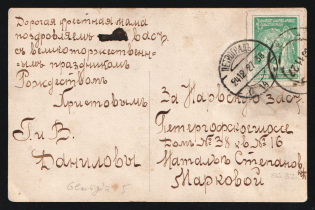 Дорогая крестная мама
поздравляем вас
с великоторжествен-
ным праздником
Рождеством
Христовым
П. и В.
Даниловы
За Нарвскую Заст.
Петергофское шоссе
Дом № 38 кв. № 16
Степанов
Марковой
ПЕТРОГРАД